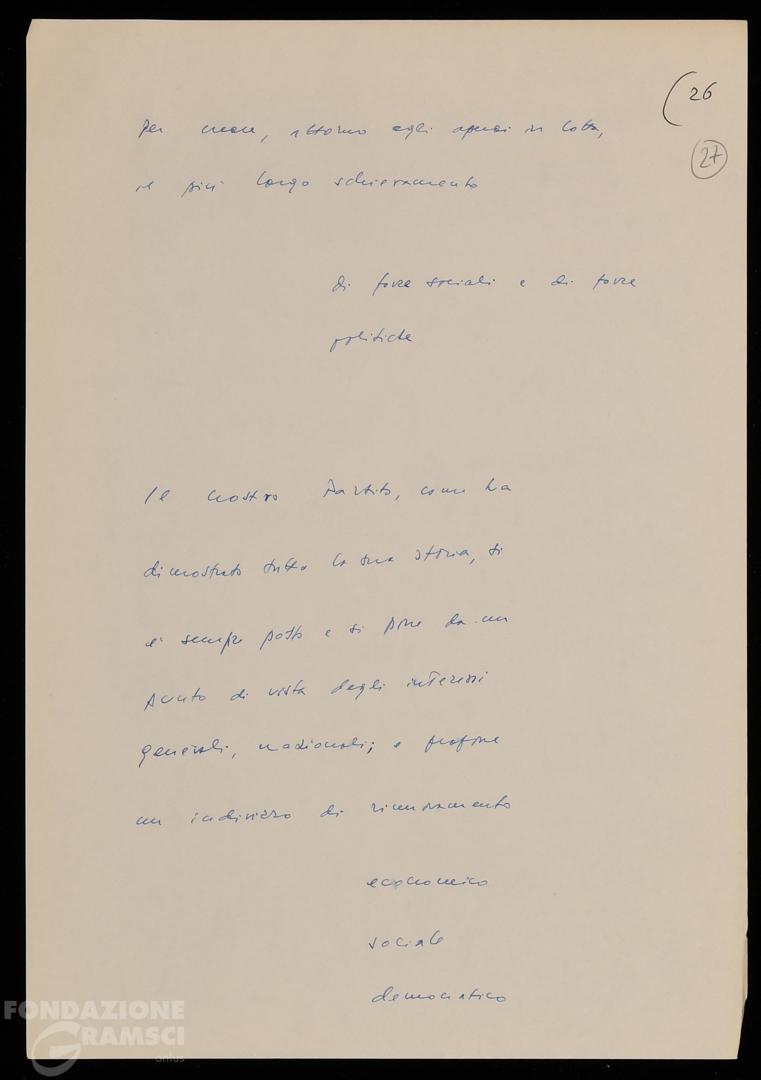 (26
27
Per creare, attorno agli operai in lotta,
il più largo schieramento
di forze sociali e di forze
politiche
Il nostro Partito, come ha
dimostrato tutta la sua storia, si
è sempre posto e si pone da un
punto di vista degli interessi
generali, nazionali; e propone
un indirizzo di rinnovamento
economico
sociale
democratico
FONDAZIONE
GRAMSCI
onlus